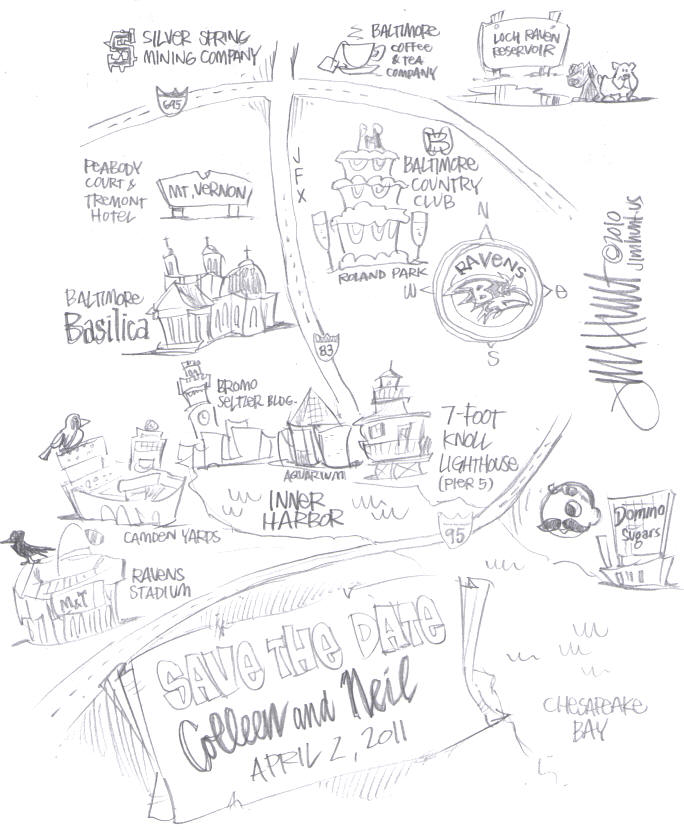 SILVER SPRING
MINING COMPANY
BALTIMORE
COFFEE
& TEA
COMPANY
LOCH RAVEN
RESERVOIR
695
JFX
PEABODY
COURT &
TREMONT
HOTEL
MT. VERNON
BALTIMORE
COUNTRY
CLUB
ROLAND PARK
N
RAVENS
B
W
E
S
©2010
jimhunt.us
Jim Hunt
BALTIMORE
Basilica
83
BROMO
SELTZER BLDG.
AQUARIUM
7-FOOT
KNOLL
LIGHTHOUSE
(PIER 5)
INNER
HARBOR
CAMDEN YARDS
95
Domino
Sugars
M&T
RAVENS
STADIUM
SAVE THE DATE
Colleen and Neil
APRIL 2, 2011
CHESAPEAKE
BAY